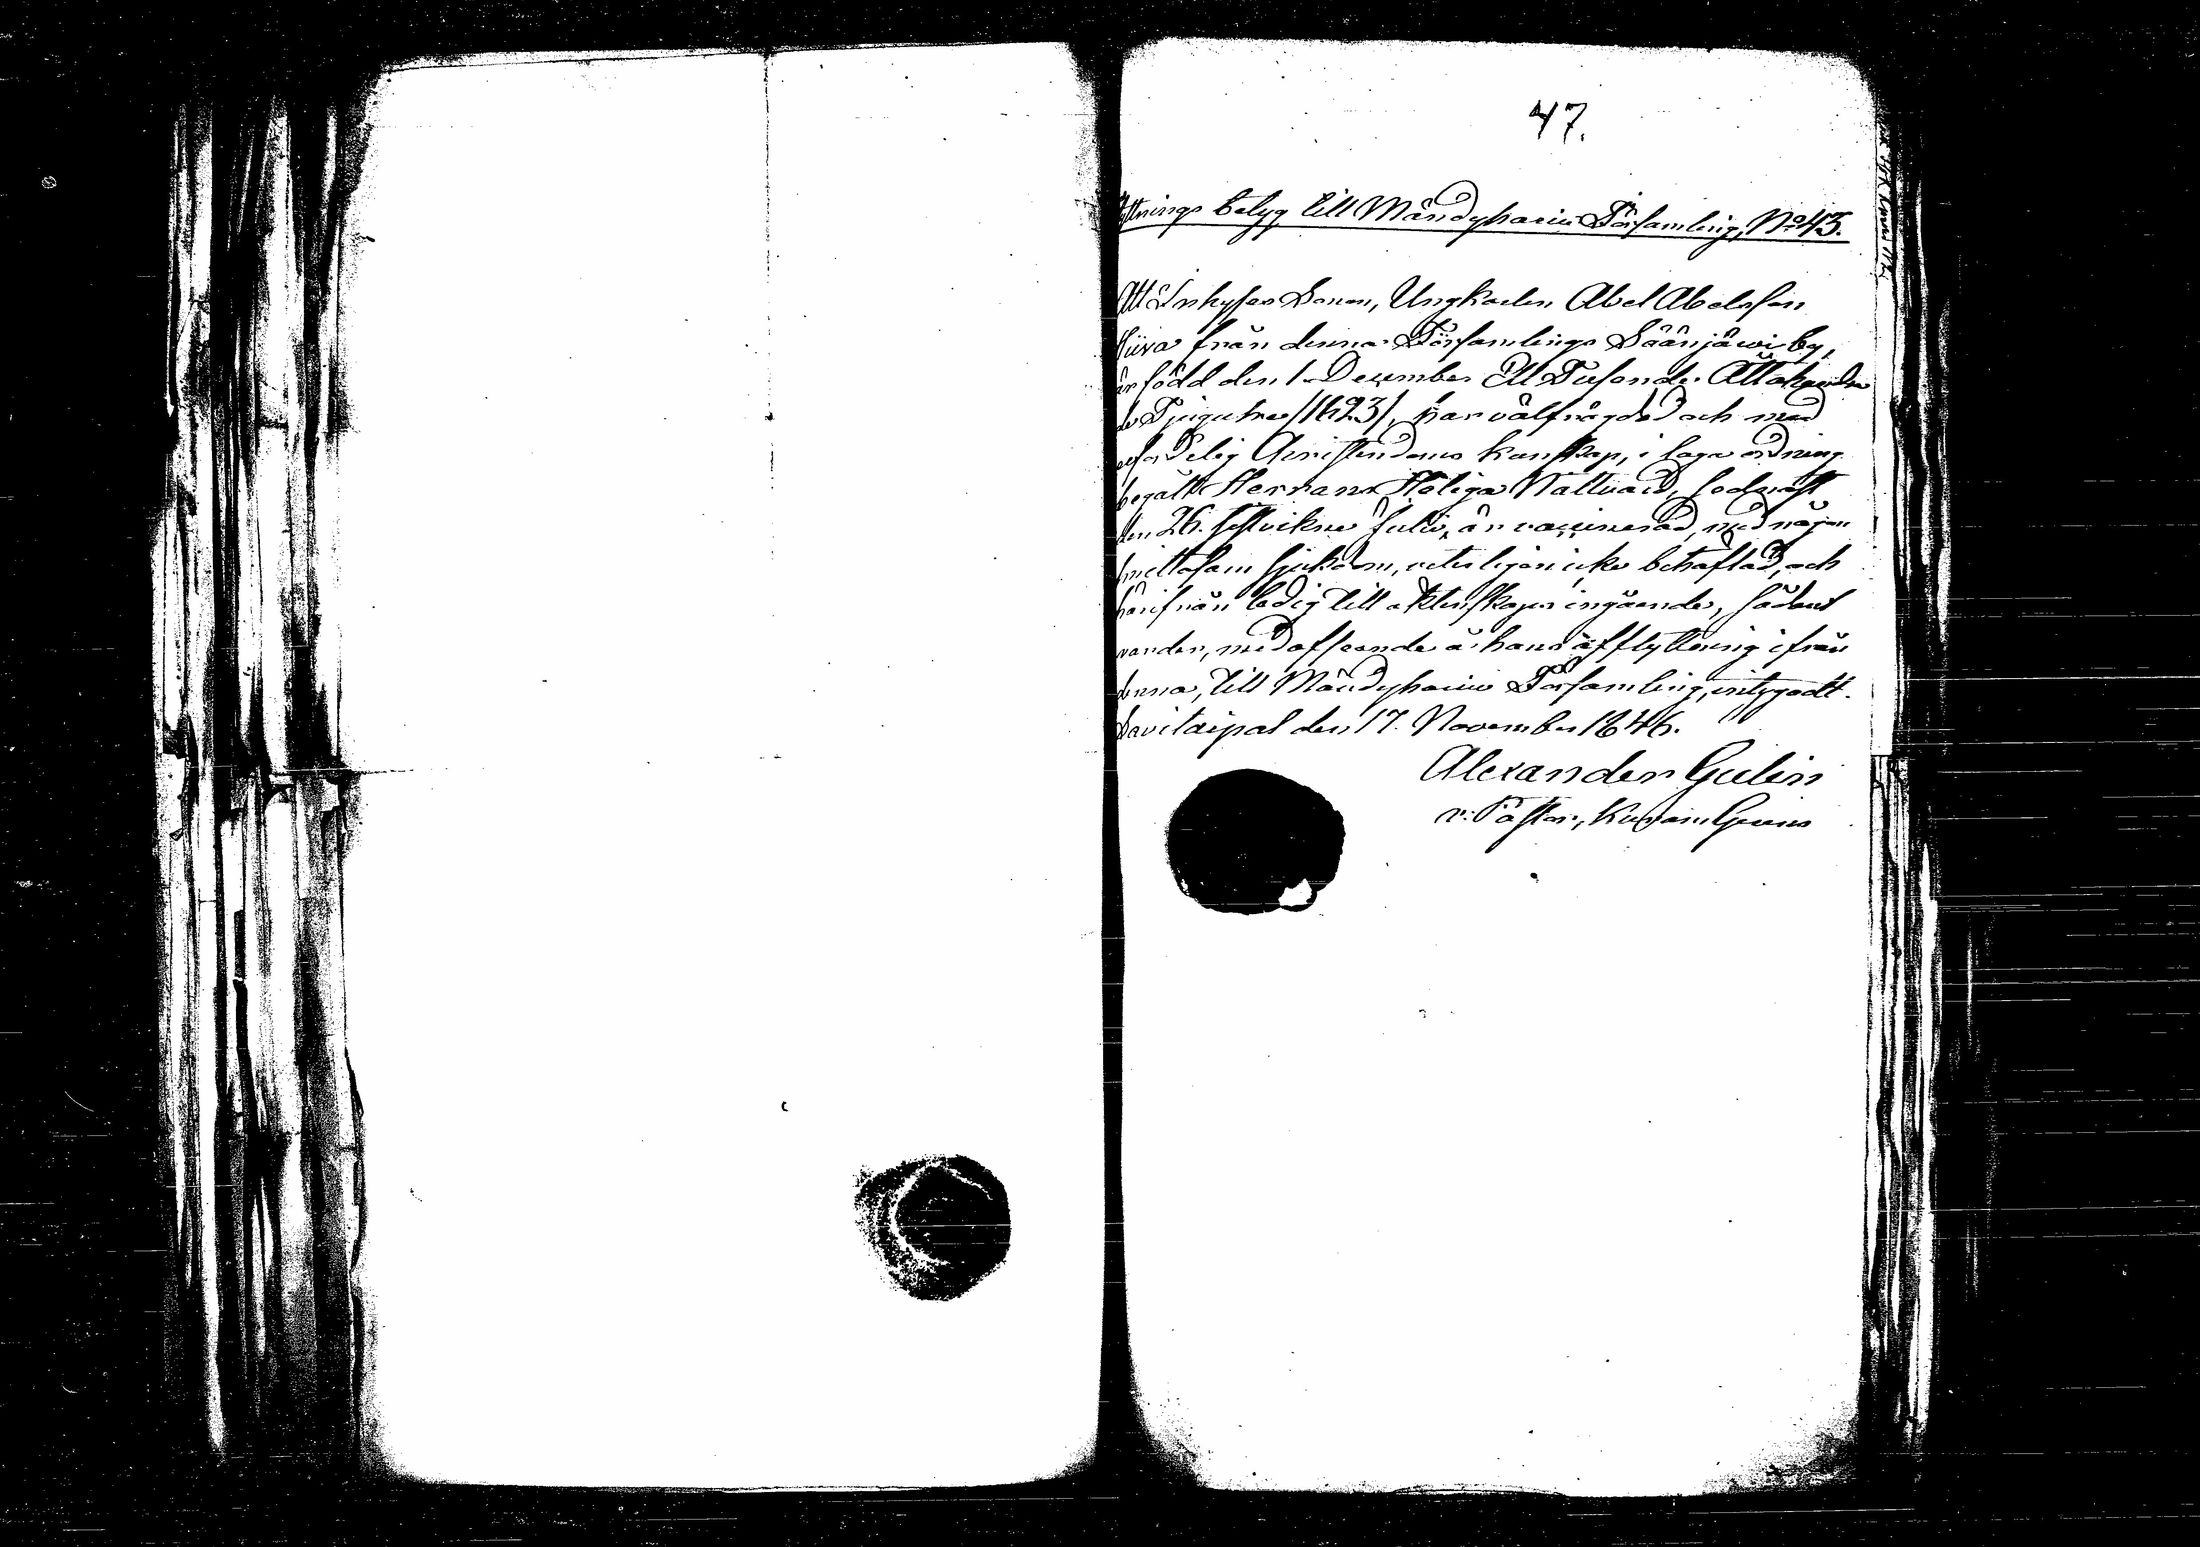 47.
ttnings betyg till Mändyharju Församling, No 43.
Att Inhyses Sonen, Ungkarlen Abel Abelsson
Hiiva från denna Församlings Säänjärwi by,
är född den 1 December Ett Tusonde Åttahundra
de Tjugutre /1823/, har välfrägdad och med
Christendoms kunskap, i laga ordning
begått Herrans Heliga Nattvard, sednast
den 26. sistvikne Julii, är vaccinerad, med någon
smittosam sjukdom, veterligen icke behäftad, och
härifrån ledig till äktenskaps ingående, sådant
varder, med afseende å hans afflyttning ifrån
denna, till Mändyharju Församling, intygadt.
Savitaipal den 17. November 1846.
Alexander Gulin
v. Pastor,